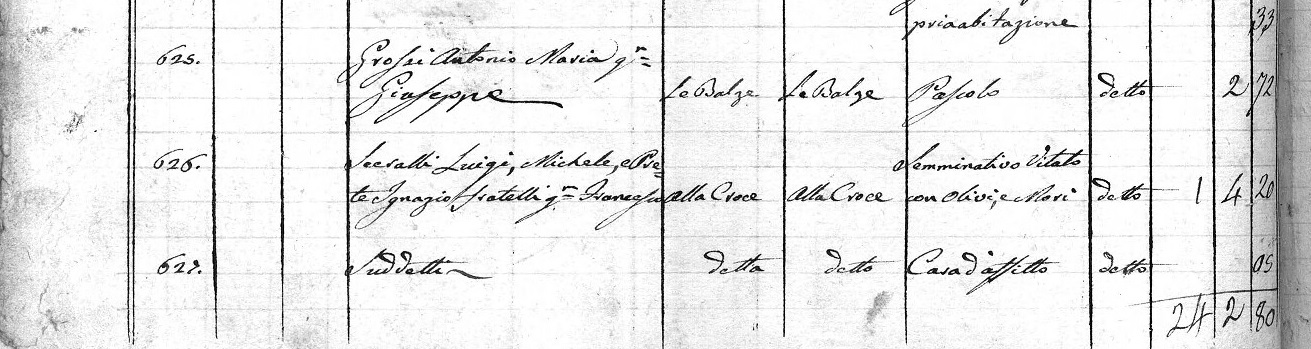 priaabitazione 33
625. Grossi Antonio Maria qm=
Giuseppe Le Balze Le Balze Pascolo detto 2 72
626. Luigi, Michele, e Pre= Semminativo Vitato
te Ignazio fratelli qm Francesco Alla Croce Alla Croce con Olivi, e Mori detto 1 4 20
627. Suddetti detta detto Casa d'affitto detto 05
24 2 80